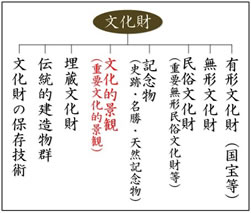 文化財
有形文化財（国宝等）
無形文化財
民俗文化財
（重要無形民俗文化財等）
記念物
（史跡・名勝・天然記念物）
文化的景観
（重要文化的景観）
埋蔵文化財
伝統的建造物群
文化財の保存技術